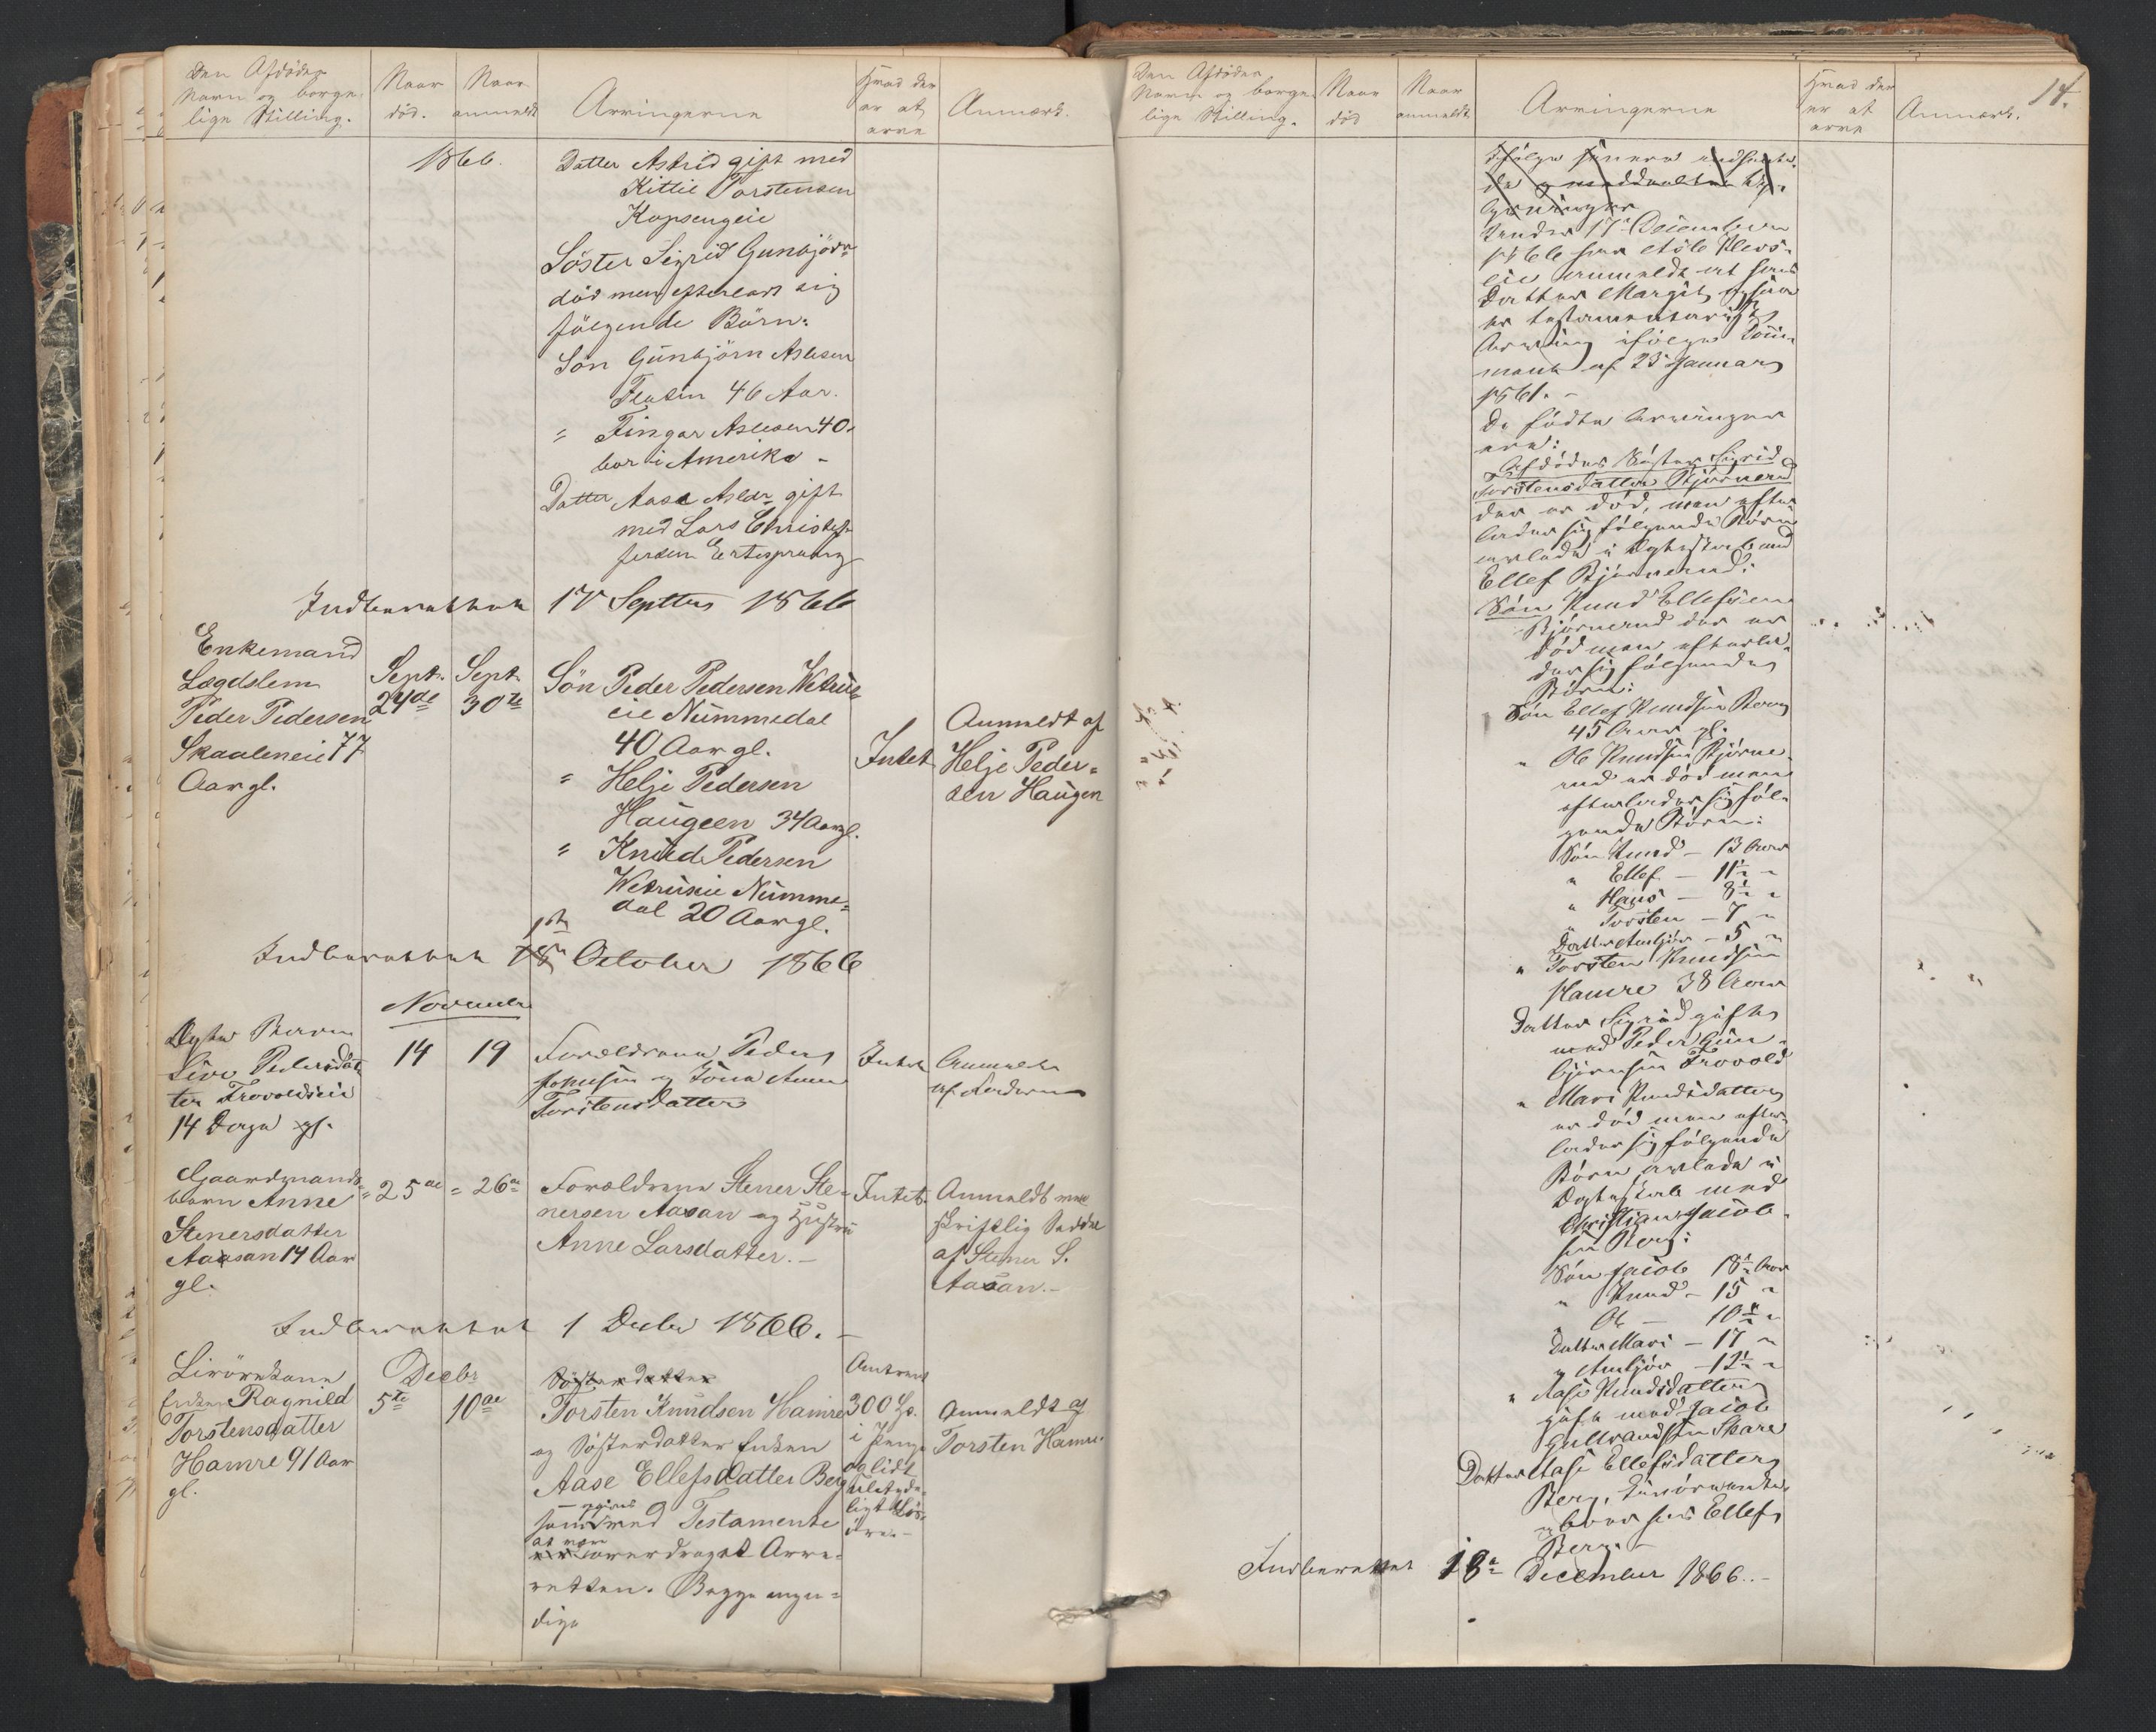 Den Afdödes
Navn og borger-
lige Stilling.
Naar
död.
Naar
anmeldt
Arvingerne
Hvad der
er at
arve
Anmærk.
1866.
Datter Astrid gift med
Kittil Torstensen
Kopsengeie
Söster Sigrid Gunbjörn-
död men efterladt sig
fölgende Börn:
Sön Gunbjörn Aslesen
46 Aar.
" Fingar Aslesen 40.
bor i Amerika -
Datter Aase Aslesdr gift
med Lars Christof-
fersen
Indberettet 17 Septbr 1866
Enkemand
Lægdslem
Peder Pedersen
Skaaleneie 77
Aar gl.
Sept.
24de
Sept.
30te
Sön Peder Pedersen
eie Nummedal
40 Aar gl.
" Helje Pedersen
Haugeen 34 Aar gl.
" Knud Pedersen
Numme-
dal 20 Aar gl.
Intet
Anmeldt af
Helje Peder-
sen Haugen
Indberettet 1ste October 1866
November
Ægte Barn
Live Pedersdat-
ter Frovoldseie
14 Dage gl.
14
19
Forældrene Peder
Johnsen og Kone Anne
Torstensdatter
Intet
Anmeldt
af Faderen
Gaardmands-
barn Anne
Stenersdatter
Aasan 14 Aar
gl.
" 25de
" 26de
Forældrene Stener Ste-
nersen Aasan og Hustru
Anne Larsdatter. -
Intet
Anmeldt ved
skriftlig Seddel
af Stener S.
Aasan. -
Indberettet 1 Decbr 1866. -
Livörekone
Enken Ragnild
Torstensdatter
Hamre 91 Aar
gl.
Decbr
5te
10de
Söskendatter
Torsten Knudsen Hamre
og Sösterdatter Enken
Aase Ellefsdatter Berg
som angives ved Testamente
at være overdraget Arve-
retten. Begge myn-
dige
Omtrent
300 Spd.
i Penge
og lidt
ubetyde-
ligt Lös-
öre. -
Anmeldt af
Torsten Hamre.
Den Afdödes
Navn og borger-
lige Stilling.
Naar
död
Naar
anmeldt.
Arvingerne
Hvad der
er at
arve
Anmærk.
14.
Ifölge senere indhente-
de og meddeelte Op-
lysninger
Under 17de December
1866 har
anmeldt at hans
Datter Margit ogsaa
er testamentarisk
Arving ifölge
af 23 Januar
1861. -
De fødte Arvinger
ere:
Afdödes Söster Sigrid
Torstensdatter Björnerud
der er död, men efter-
lader sig fölgende Börn
avlede i Ægteskab med
Ellef Björnerud:
Sön Knud Ellefsen
Björnerud der er
död men efterla-
der sig fölgende
Börn:
Sön Ellef Knudsen Berg
45 Aar gl.
" Ole Knudsen Björne-
rud er död men
efterlader sig föl-
gende Börn:
Sön Knud - 13 Aar
" Ellef - 11½ "
" Hans - 8½ "
" Torsten - 7 "
Datter Anbjör - 5 "
" Torsten Knudsen
Hamre 38 Aar
Datter Sigrid gift
med Peder Gun-
björnsen Frovold
" Mari Knudsdatter
er död men efter-
lader sig fölgende
Börn avlede i
Ægteskab med
Christian Jacob-
sen Berg:
Sön Jacob 18½ Aar
" Knud - 15 "
" Ole - 10½ "
Datter Mari - 17 "
" Anbjör - 12½ "
" Aase Knudsdatter
gift med Jacob
Gulbrandsen Skare
Datter Aase Ellefsdatter
Berg,
hos Ellef
Berg. -
Indberettet 18de December 1866. -